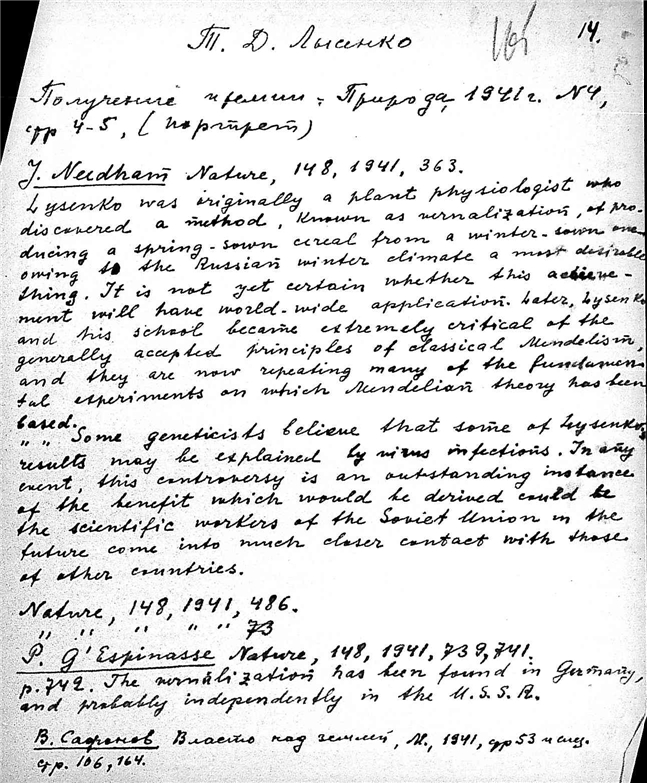 14.
Т. Д. Лысенко
Получение премии: Природа, 1941 г. N4,
стр 4-5, (портрет)
J. Needham Nature, 148, 1941, 363.
Lysenko was originally a plant physiologist who
discovered a method, known as vernalization, of pro-
ducing a spring-sown cereal from a winter-sown one
owing to the Russian winter climate a most desirable
thing. It is not yet certain whether this achieve-
ment will have world-wide application. Later, Lysenko
and his school became extremely critical of the
generally accepted principles of classical Mendelism,
and they are now repeating many of the fundamen-
tal experiments on which Mendelian theory has been
based.
" " Some geneticists believe that some of Lysenko's
results may be explained by virus infections. In any
event, this controversy is an outstanding instance
of the benefit which would be derived could be
the scientific workers of the Soviet Union in the
future come into much closer contact with those
of other countries.
Nature, 148, 1941, 486.
" " " " " 73
P. G'Espinasse Nature, 148, 1941, 739, 741.
p. 742. The vernalization has been found in Germany,
and probably independently in the U.S.S.R.
В. Сафонов Власть над землей, М., 1941, стр 53 и след.
стр. 106, 164.